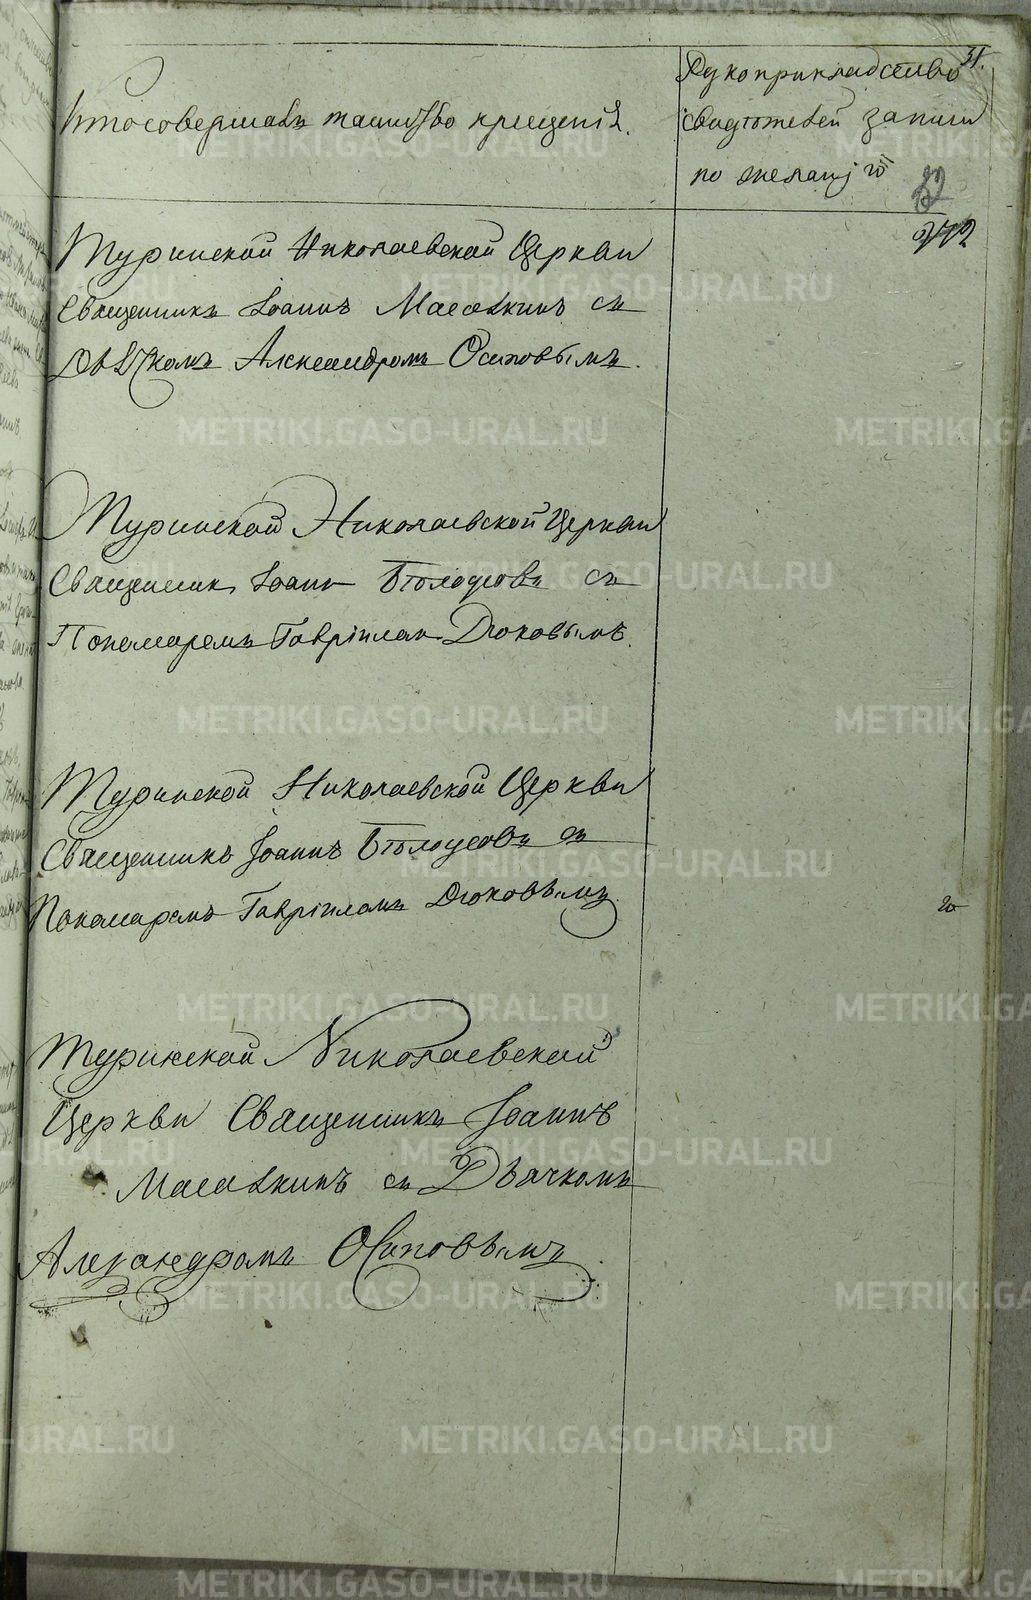 31.
Кто совершалъ таинство крещенія.
Рукоприкладство
свидѣтелей записи
по желанію
32
272
Туринской Николаевской Церкви
Священникъ Іоаннъ Масалкинъ съ
Дьячкомъ Александромъ Осиповымъ.
Туринской Николаевской Церкви
Священникъ Іоаннъ Бѣлоусовъ съ
Пономаремъ Гавріиломъ Дюковымъ.
Туринской Николаевской Церкви
Священникъ Іоаннъ Бѣлоусовъ съ
Пономаремъ Гавріиломъ Дюковымъ.
Туринской Николаевской
Церкви Священникъ Іоаннъ
Масалкинъ съ Дьячкомъ
Александромъ Осиповымъ.
METRIKI.GASO-URAL.RU